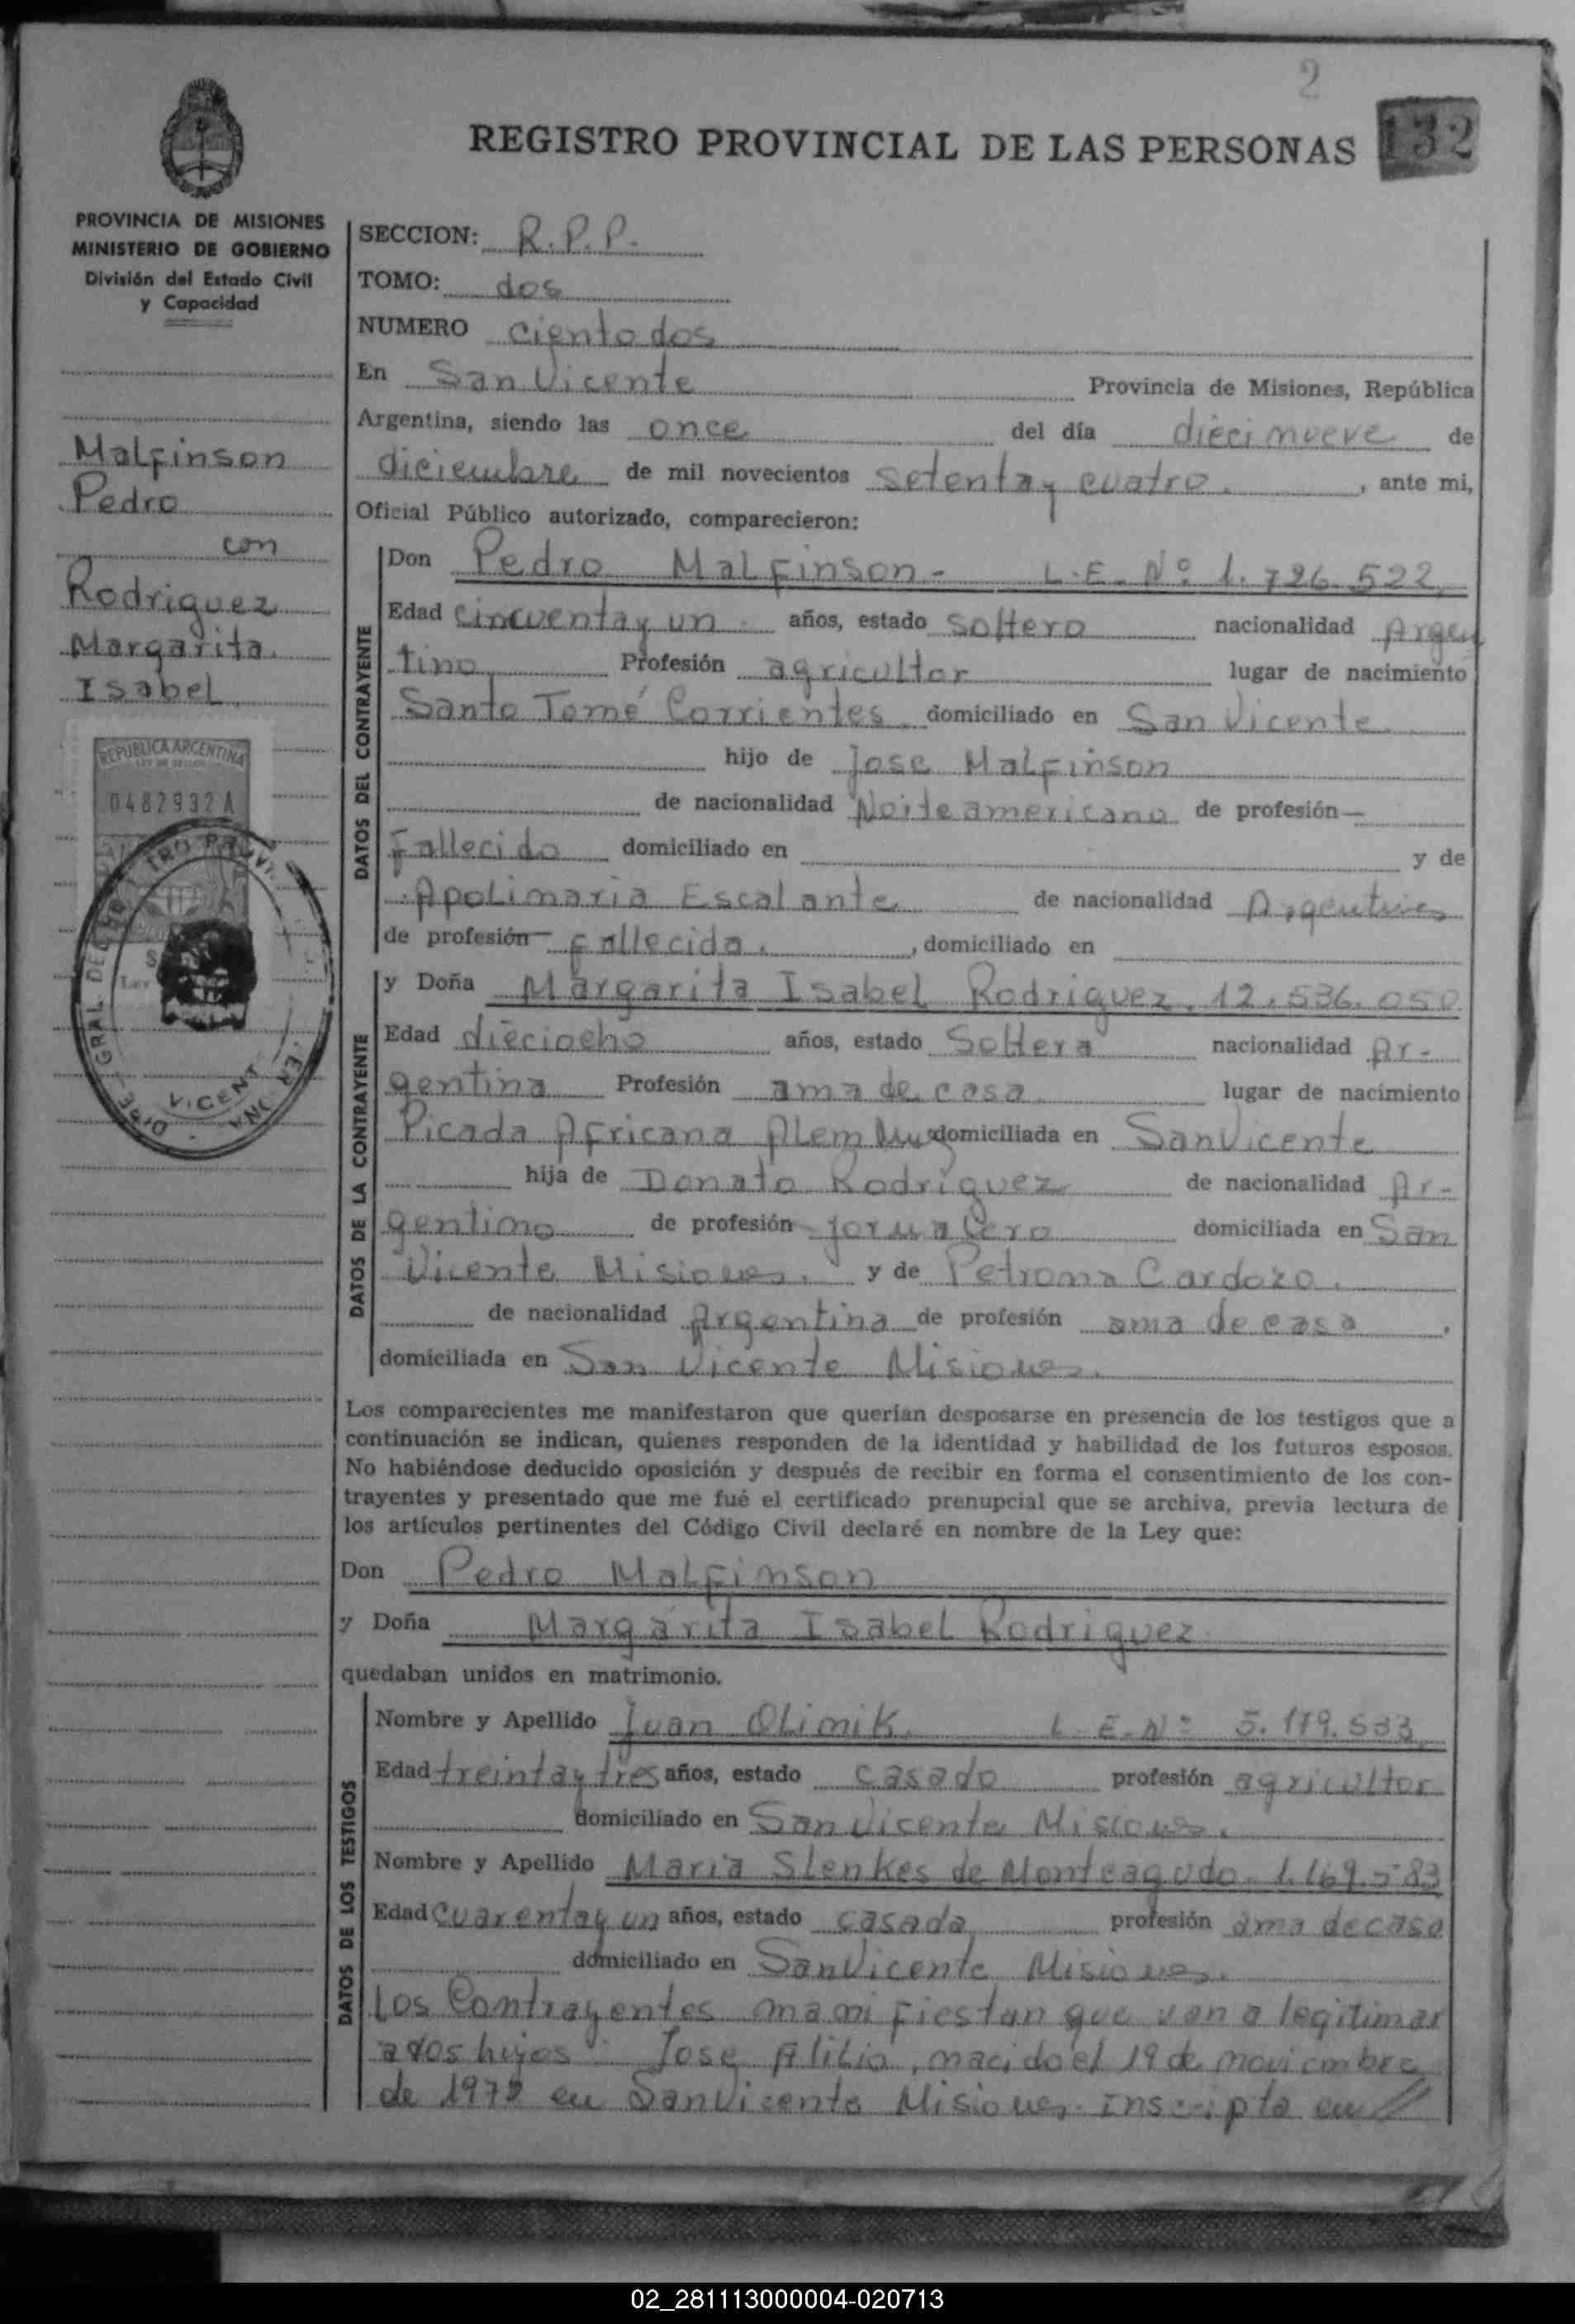 2
REGISTRO PROVINCIAL DE LAS PERSONAS 132
PROVINCIA DE MISIONES
MINISTERIO DE GOBIERNO
División del Estado Civil
y Capacidad
Malfinson
Pedro
con
Rodriguez
Margarita
Isabel
REPUBLICA ARGENTINA
0482932 A
SECCION: R.P.P.
TOMO: dos
NUMERO ciento dos
En San Vicente Provincia de Misiones, República
Argentina, siendo las once del día diecinueve de
diciembre de mil novecientos setenta y cuatro. , ante mi,
Oficial Público autorizado, comparecieron:
DATOS DEL CONTRAYENTE
Don Pedro Malfinson - L.E. Nº 1.726.522
Edad cincuenta y un años, estado soltero nacionalidad Argen
tino Profesión agricultor lugar de nacimiento
Santo Tomé Corrientes domiciliado en San Vicente
hijo de Jose Malfinson
de nacionalidad Norteamericano de profesión—
Fallecido domiciliado en y de
Apolinaria Escalante de nacionalidad Argentina
de profesión— fallecida. , domiciliado en
DATOS DE LA CONTRAYENTE
y Doña Margarita Isabel Rodriguez. 12.536.050
Edad dieciocho años, estado Soltera nacionalidad Ar-
gentina Profesión ama de casa lugar de nacimiento
Picada Africana Alem domiciliada en San Vicente
hija de Donato Rodriguez de nacionalidad Ar-
gentino de profesión jornalero domiciliada en San
Vicente Misiones. y de Petrona Cardozo.
de nacionalidad Argentina de profesión ama de casa ,
domiciliada en San Vicente Misiones.
Los comparecientes me manifestaron que querían desposarse en presencia de los testigos que a
continuación se indican, quienes responden de la identidad y habilidad de los futuros esposos.
No habiéndose deducido oposición y después de recibir en forma el consentimiento de los con-
trayentes y presentado que me fué el certificado prenupcial que se archiva, previa lectura de
los artículos pertinentes del Código Civil declaré en nombre de la Ley que:
Don Pedro Malfinson
y Doña Margarita Isabel Rodriguez
quedaban unidos en matrimonio.
DATOS DE LOS TESTIGOS
Nombre y Apellido Juan Olimik. L.E.Nº 5.179.533
Edad treinta y tres años, estado casado profesión agricultor
domiciliado en San Vicente Misiones.
Nombre y Apellido Maria Slenkes de Monteagudo. 1.169.583
Edad cuarenta y un años, estado casada profesión ama de casa
domiciliado en San Vicente Misiones.
Los Contrayentes manifiestan que van a legitimar
a dos hijos: Jose Alilio, nacido el 19 de noviembre
de 1972 en San Vicente Misiones. inscripto en //
02_281113000004-020713